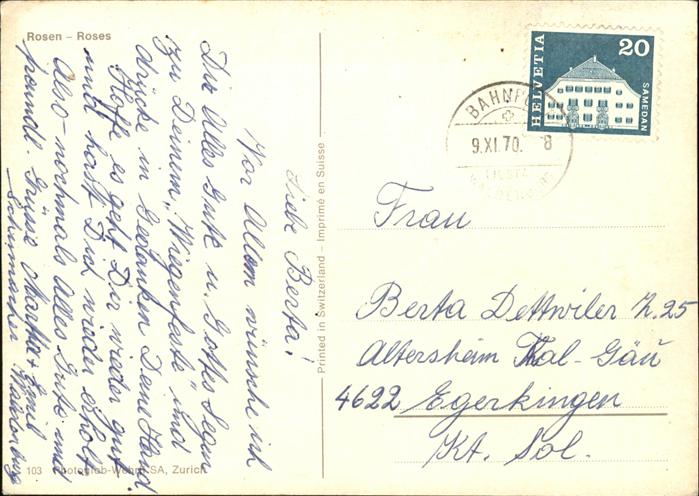 Rosen – Roses
Liebe Berta!
Vor Allem wünsche ich
Dir Alles Gute u. Gottes Segen
zu Deinem „Wiegenfeste" und
drücke in Gedanken Deine Hand
Hoffe es geht Dir wieder gut
und hast Dich wieder erholt.
Also – nochmals Alles Gute und
freundl Grüsse Martha + Emil
Schumacher
103 Photoglob-Wehrli SA, Zurich
Printed in Switzerland – Imprimé en Suisse
HELVETIA
20
SAMEDAN
BAHNPOST
9.XI.70. 8
Frau
Berta Dettwiler Z. 25
Altersheim Thal-Gäu
4622 Egerkingen
Kt. Sol.